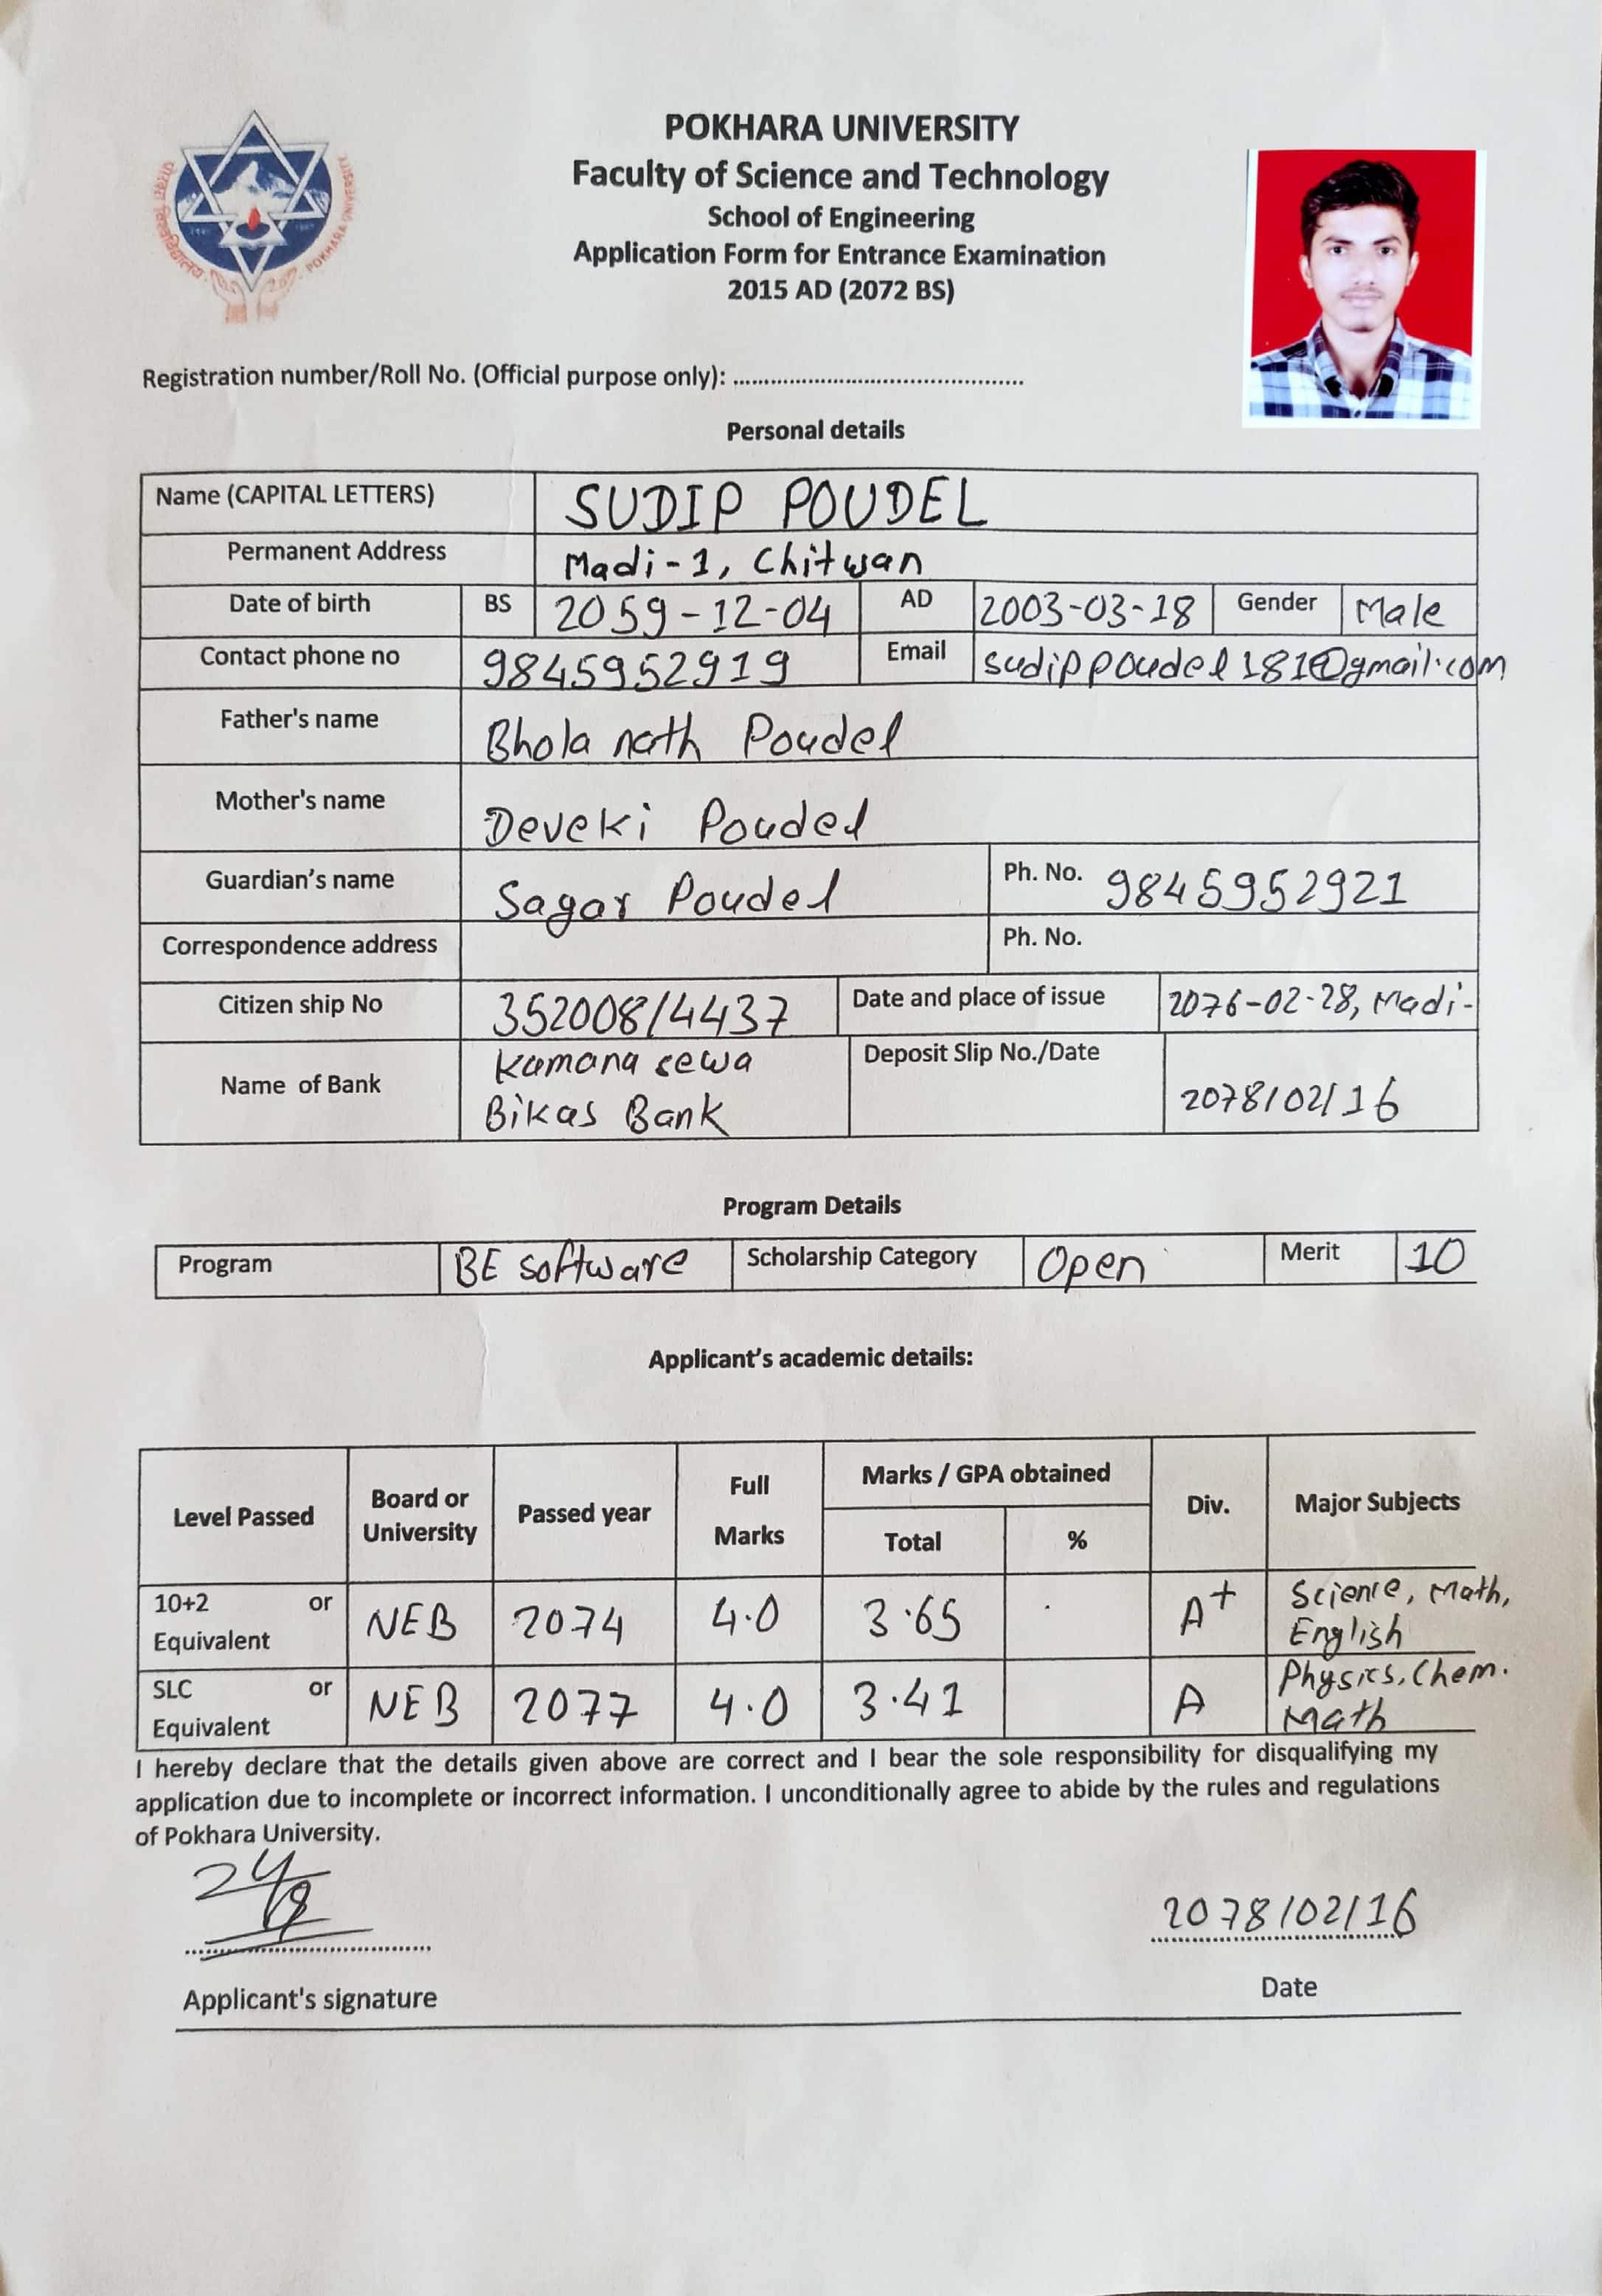 POKHARA UNIVERSITY
Faculty of Science and Technology
School of Engineering
Application Form for Entrance Examination
2015 AD (2072 BS)
पोखरा विश्वविद्यालय
POKHARA UNIVERSITY
Registration number/Roll No. (Official purpose only): ..............................................
Personal details
Name (CAPITAL LETTERS) SUDIP POUDEL
Permanent Address Madi-1, Chitwan
Date of birth BS 2059-12-04 AD 2003-03-18 Gender Male
Contact phone no 9845952919 Email sudippoudel181@gmail.com
Father's name Bhola nath Poudel
Mother's name Deveki Poudel
Guardian's name Sagar Poudel Ph. No. 9845952921
Correspondence address Ph. No.
Citizen ship No 352008/4437 Date and place of issue 2076-02-28, Madi-
Name of Bank Kamana sewa
Bikas Bank Deposit Slip No./Date 2078/02/16
Program Details
Program BE software Scholarship Category Open Merit 10
Applicant's academic details:
Level Passed Board or University Passed year Full Marks Marks / GPA obtained Div. Major Subjects
Total %
10+2 or Equivalent NEB 2074 4.0 3.65 A+ Science, Math, English
SLC or Equivalent NEB 2077 4.0 3.41 A Physics, Chem. Math
I hereby declare that the details given above are correct and I bear the sole responsibility for disqualifying my
application due to incomplete or incorrect information. I unconditionally agree to abide by the rules and regulations
of Pokhara University.
2078/02/16
Applicant's signature Date